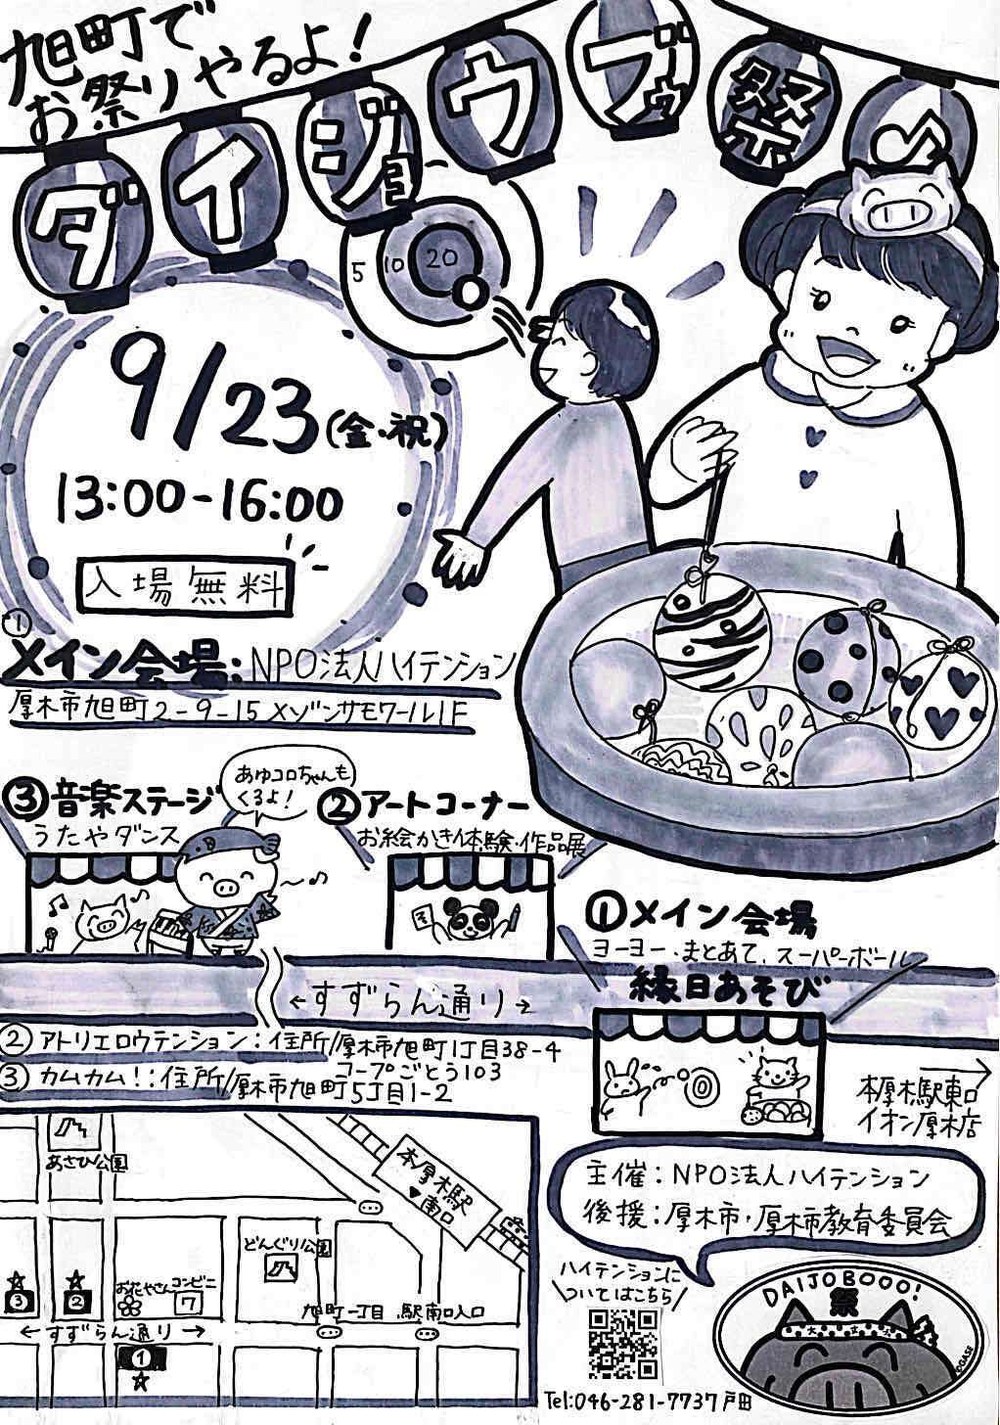 旭町で
お祭りやるよ!
ダイジョーブゥ祭
5 10 20
9/23(金・祝)
13:00-16:00
入場無料
①
メイン会場:NPO法人ハイテンション
厚木市旭町2-9-15メゾンサモワール1F
③音楽ステージ
うたやダンス
あゆコロちゃんも
くるよ!
②アートコーナー
お絵かき体験・作品展
①メイン会場
ヨーヨー、まとあて、スーパーボール
縁日あそび
←すずらん通り→
②アトリエロウテンション:住所/厚木市旭町1丁目38-4
コープごとう103
③カムカム!:住所/厚木市旭町5丁目1-2
本厚木駅東口
イオン厚木店
あさひ公園
本厚木駅
▼南口
どんぐり公園
お花やさん
コンビニ
7
旭町一丁目
駅南口入口
☆
③
☆
②
←すずらん通り→
①
☆
主催:NPO法人ハイテンション
後援:厚木市・厚木市教育委員会
ハイテンションに
ついてはこちら
DAIJOBOOO!
祭
Tel:046-281-7737戸田